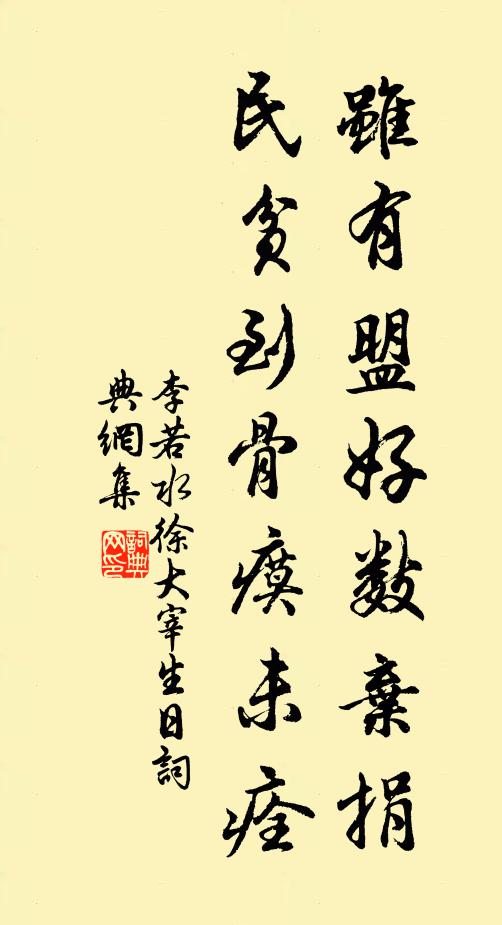 雖有盟好數棄捐
民貧到骨瘼未痊
李若水徐大宰生日詞
典網集
詞典
网印